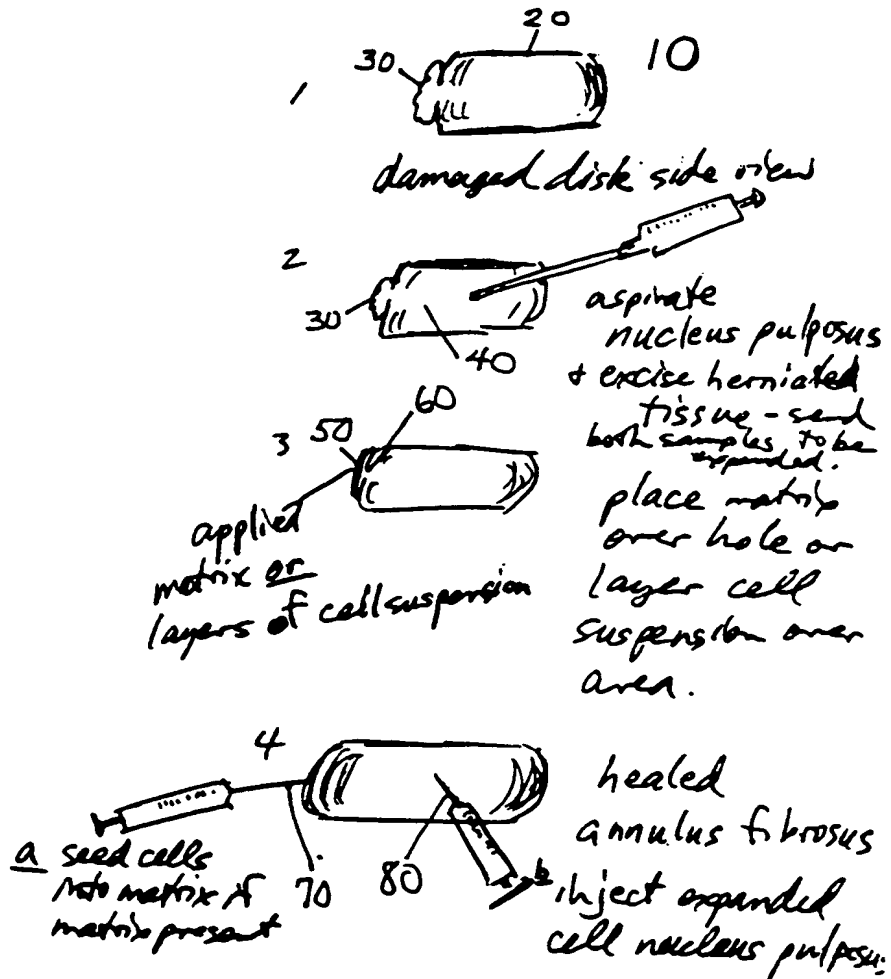 20
30
10
1
damaged disk side view
2
30
40
aspirate
nucleus pulposus
+ excise herniated
tissue - send
both samples to be
expanded.
3 50 60
applied
matrix or
layers of cell suspension
place matrix
over hole or
layer cell
suspension over
area.
4
healed
annulus fibrosus
a seed cells
into matrix if
matrix present
70
80
b
inject expanded
cell nucleus pulposus.